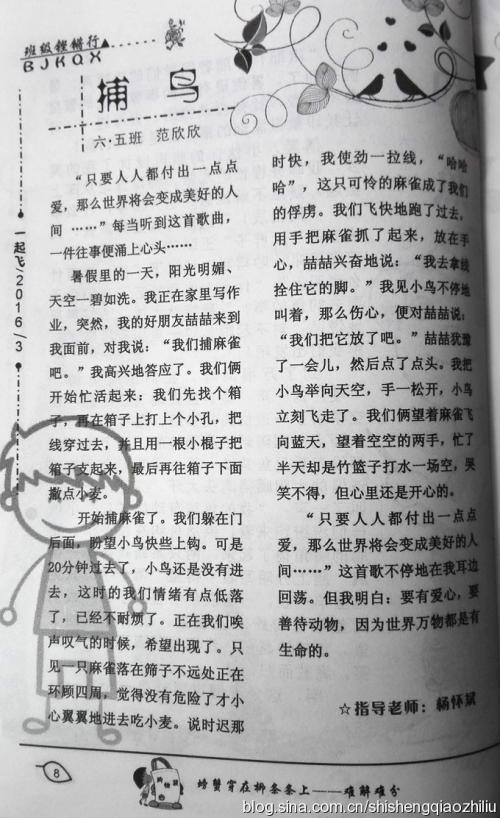 班级铿锵行
BJKQX
捕鸟
六·五班 范欣欣
“只要人人都付出一点点
爱，那么世界将会变成美好的人
间 ……”每当听到这首歌曲，
一件往事便涌上心头……
暑假里的一天，阳光明媚、
天空一碧如洗。我正在家里写作
业，突然，我的好朋友喆喆来到
我面前，对我说：“我们捕麻雀
吧。”我高兴地答应了。我们俩
开始忙活起来：我们先找个箱
子，再在箱子上打上个小孔，把
线穿过去，并且用一根小棍子把
箱子支起来，最后再往箱子下面
撒点小麦。
开始捕麻雀了。我们躲在门
后面，盼望小鸟快些上钩。可是
20分钟过去了，小鸟还是没有进
去，这时的我们情绪有点低落
了，已经不耐烦了。正在我们唉
声叹气的时候，希望出现了。只
见一只麻雀落在筛子不远处正在
环顾四周，觉得没有危险了才小
心翼翼地进去吃小麦。说时迟那
时快，我使劲一拉线，“哈哈
哈”，这只可怜的麻雀成了我们
的俘虏。我们飞快地跑了过去，
用手把麻雀抓了起来，放在手
心，喆喆兴奋地说：“我去拿线
拴住它的脚。”我见小鸟不停地
叫着，那么伤心，便对喆喆说：
“我们把它放了吧。”喆喆犹豫
了一会儿，然后点了点头。我把
小鸟举向天空，手一松开，小鸟
立刻飞走了。我们俩望着麻雀飞
向蓝天，望着空空的两手，忙了
半天却是竹篮子打水一场空，哭
笑不得，但心里还是开心的。
“只要人人都付出一点点
爱，那么世界将会变成美好的人
间……”这首歌不停地在我耳边
回荡。但我明白：要有爱心，要
善待动物，因为世界万物都是有
生命的。
☆指导老师：杨怀斌
一起飞/2016/3
8
螃蟹穿在柳条条上——难解难分
blog.sina.com.cn/shishengqiaozhiliu